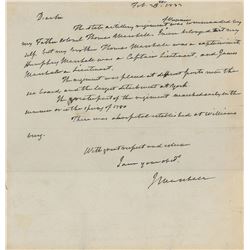 Feb. 1832
Dear Sir
The state artillery regiment was commanded by
my Father Colonel Thomas Marshall. I never belonged to it my
self but my brother Thomas Marshall was a captain
Humphrey Marshall was a Captain Lieutenant, and James
Marshall a Lieutenant.
The regiment was placed at different posts near the
sea board, and the largest detachment at York
The greater part of the regiment marched early in the
summer or in the spring of 1780
There was a hospital established at Williams
burg.
With great respect and esteem
I am your obedt.
J Marshall